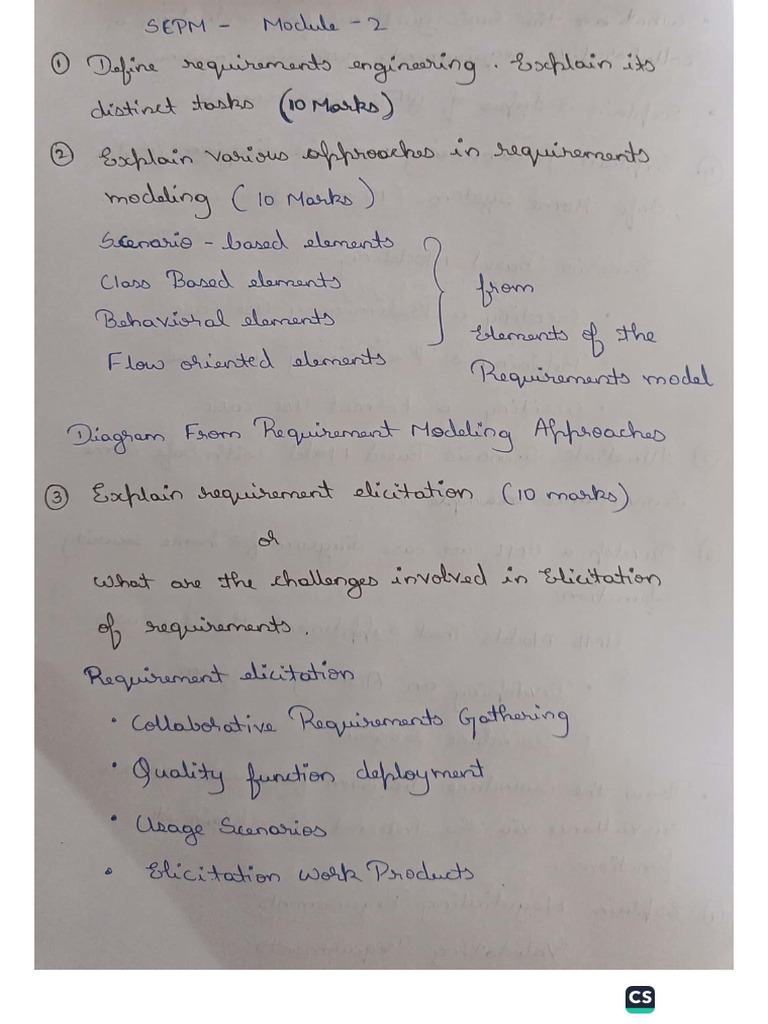 SEPM - Module - 2
① Define requirements engineering. Explain its
distinct tasks (10 Marks)
② Explain various approaches in requirements
modeling (10 Marks)
Scenario - based elements
Class Based elements
Behavioral elements
Flow oriented elements
from
Elements of the
Requirements model
Diagram From Requirement Modeling Approaches
③ Explain requirement elicitation (10 marks)
or
What are the challenges involved in Elicitation
of requirements.
Requirement elicitation
• Collaborative Requirements Gathering
• Quality function deployment
• Usage Scenarios
• Elicitation Work Products
CS